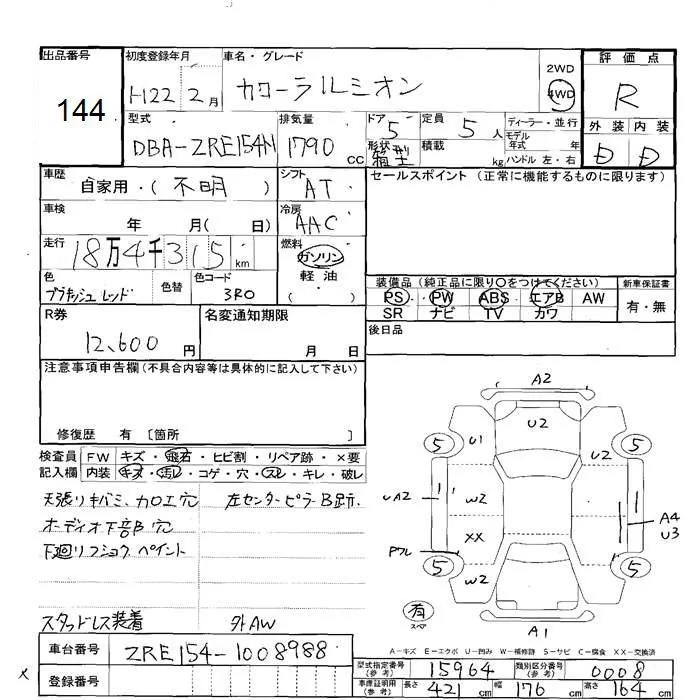 出品番号 144
初度登録年月 H22 2月
車名・グレード カローラルミオン
2WD
4WD
評価点 R
型式 DBA-ZRE154N
排気量 1790 cc
ドア 5
形状 箱型
定員 5 人
積載 kg
ディーラー・並行
モデル年式 年
ハンドル 左・右
外装 内装
D D
車歴 自家用・(不明)
シフト AT
セールスポイント (正常に機能するものに限ります)
車検 年 月( 日)
冷房 AAC
走行 18万4千315km
燃料 ガソリン
軽油
( )
色 ブラキッシュレッド
色替
色コード 3R0
装備品 (純正品に限り○をつけてください)
新車保証書
PS PW ABS エアB AW
有・無
SR ナビ TV カワ
R券 12,600円
名変通知期限 月 日
後日品
注意事項申告欄(不具合内容等は具体的に記入して下さい)
修復歴 有 〔箇所 〕
検査員記入欄
FW キズ・飛石・ヒビ割・リペア跡・×要
内装 キズ・汚レ・コゲ・穴・スレ・キレ・破レ
天張りキバミ、カロエ穴
左センターピラーB跡.
オーディオ下部穴
下廻りフショク ペイント
スタッドレス装着
外AW
A2
U2
U1
U2
5
5
UA2
W2
XX
A4
U3
Pフレ
W2
5
5
有
スペア
A1
A－キズ E－エクボ U－凹み W－補修跡 S－サビ C－腐食 XX－交換済
車台番号 ZRE154-1008988
登録番号
型式指定番号(参考) 15964
類別区分番号(参考) 0008
車庫証明用(参考) 長さ 421 cm 幅 176 cm 高さ 164 cm
x